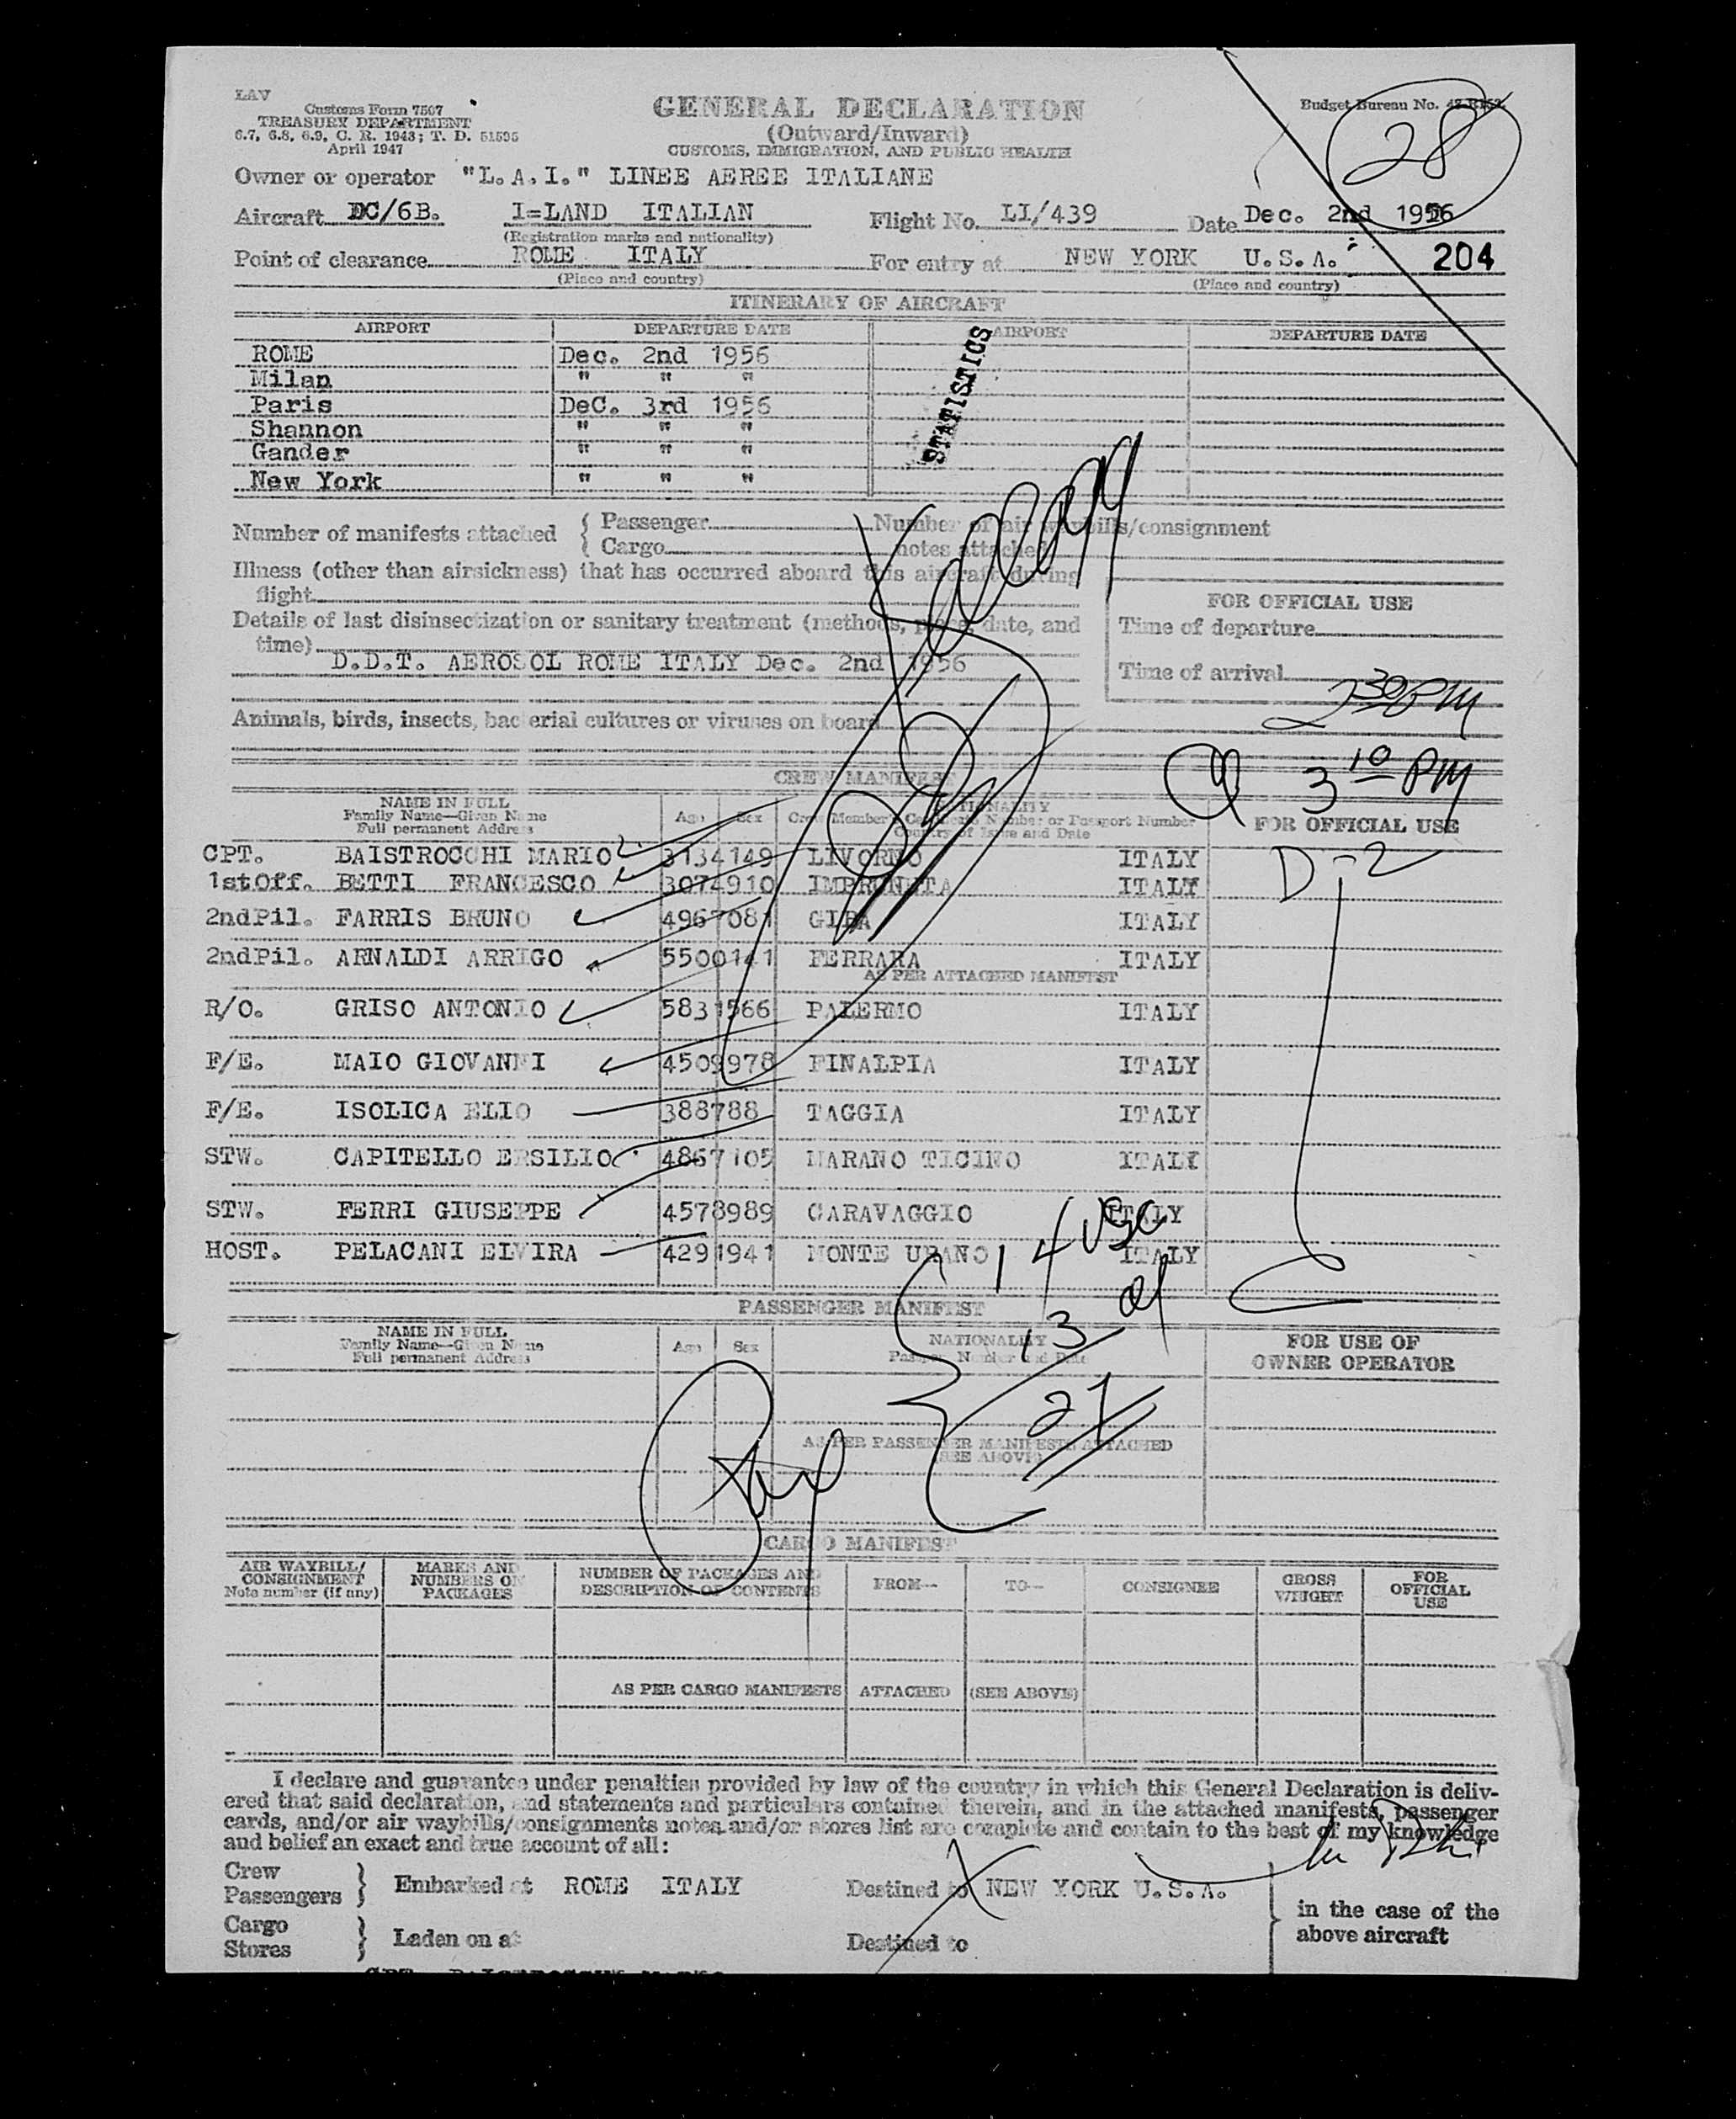 LAV
Customs Form 7507
TREASURY DEPARTMENT
6.7, 6.8, 6.9, C. R. 1943; T. D. 51595
April 1947
GENERAL DECLARATION
(Outward/Inward)
CUSTOMS, IMMIGRATION, AND PUBLIC HEALTH
Budget Bureau No.
28
Owner or operator "L.A.I." LINEE AEREE ITALIANE
Aircraft DC/6B. I=LAND ITALIAN Flight No. LI/439 Date Dec. 2nd 1956
(Registration marks and nationality)
Point of clearance ROME ITALY For entry at NEW YORK U.S.A. 204
(Place and country) (Place and country)
ITINERARY OF AIRCRAFT
AIRPORT DEPARTURE DATE AIRPORT DEPARTURE DATE
ROME Dec. 2nd 1956
Milan " " "
Paris DeC. 3rd 1956
Shannon " " "
Gander " " "
New York " " "
STATISTICS
Number of manifests attached { Passenger Number of air waybills/consignment
Cargo notes attached
Illness (other than airsickness) that has occurred aboard this aircraft during
flight
FOR OFFICIAL USE
Details of last disinsectization or sanitary treatment (methods, place, date, and
time)
Time of departure
D.D.T. AEROSOL ROME ITALY Dec. 2nd 1956
Time of arrival 2 30 PM
Animals, birds, insects, bacterial cultures or viruses on board
3 10 PM
CREW MANIFEST
NAME IN FULL
Family Name—Given Name
Full permanent Address
Age Sex
NATIONALITY
Crew Member's Certificate Number or Passport Number
Country of Issue and Date
FOR OFFICIAL USE
CPT. BAISTROCCHI MARIO 3134149 LIVORNO ITALY D-2
1stOff. BETTI FRANCESCO 3074910 IMPRUNETA ITALY
2ndPil. FARRIS BRUNO 4967081 GIBA ITALY
2ndPil. ARNALDI ARRIGO 5500141 FERRARA ITALY
AS PER ATTACHED MANIFEST
R/O. GRISO ANTONIO 5831566 PALERMO ITALY
F/E. MAIO GIOVANNI 4509978 FINALPIA ITALY
F/E. ISOLICA ELIO 388788 TAGGIA ITALY
STW. CAPITELLO ERSILIO 4867105 MARANO TICINO ITALY
STW. FERRI GIUSEPPE 4578989 CARAVAGGIO ITALY
HOST. PELACANI ELVIRA 4291941 MONTE URANO ITALY
14 USC
13 al
27
PASSENGER MANIFEST
NAME IN FULL
Family Name—Given Name
Full permanent Address
Age Sex
NATIONALITY
Passport Number and Date
FOR USE OF
OWNER OPERATOR
AS PER PASSENGER MANIFESTS ATTACHED
(SEE ABOVE)
CARGO MANIFEST
AIR WAYBILL/
CONSIGNMENT
Note number (if any)
MARKS AND
NUMBERS ON
PACKAGES
NUMBER OF PACKAGES AND
DESCRIPTION OF CONTENTS
FROM—
TO—
CONSIGNEE
GROSS
WEIGHT
FOR
OFFICIAL
USE
AS PER CARGO MANIFESTS ATTACHED (SEE ABOVE)
I declare and guarantee under penalties provided by law of the country in which this General Declaration is deliv-
ered that said declaration, and statements and particulars contained therein, and in the attached manifests, passenger
cards, and/or air waybills/consignments notes and/or stores list are complete and contain to the best of my knowledge
and belief an exact and true account of all:
Crew
Passengers } Embarked at ROME ITALY Destined to NEW YORK U.S.A.
in the case of the
above aircraft
Cargo
Stores } Laden on at Destined to